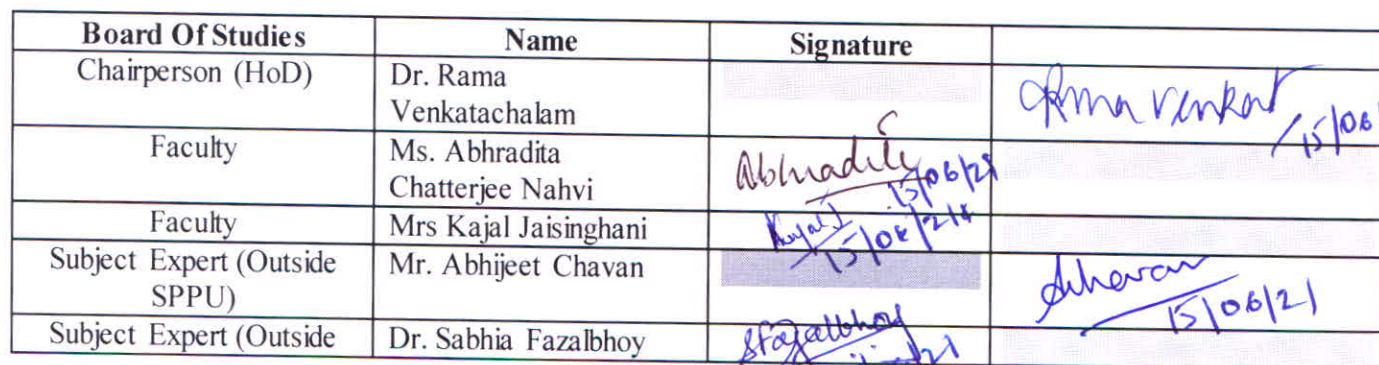 Board Of Studies Name Signature
Chairperson (HoD) Dr. Rama
Venkatachalam
Rma Venkat
15/06/
Faculty Ms. Abhradita
Chatterjee Nahvi
Abhradita
15/06/21
Faculty Mrs Kajal Jaisinghani
KajalJ
15/06/21
Subject Expert (Outside Mr. Abhijeet Chavan
SPPU)
AChavan
15/06/21
Subject Expert (Outside Dr. Sabhia Fazalbhoy
SFazalbhoy